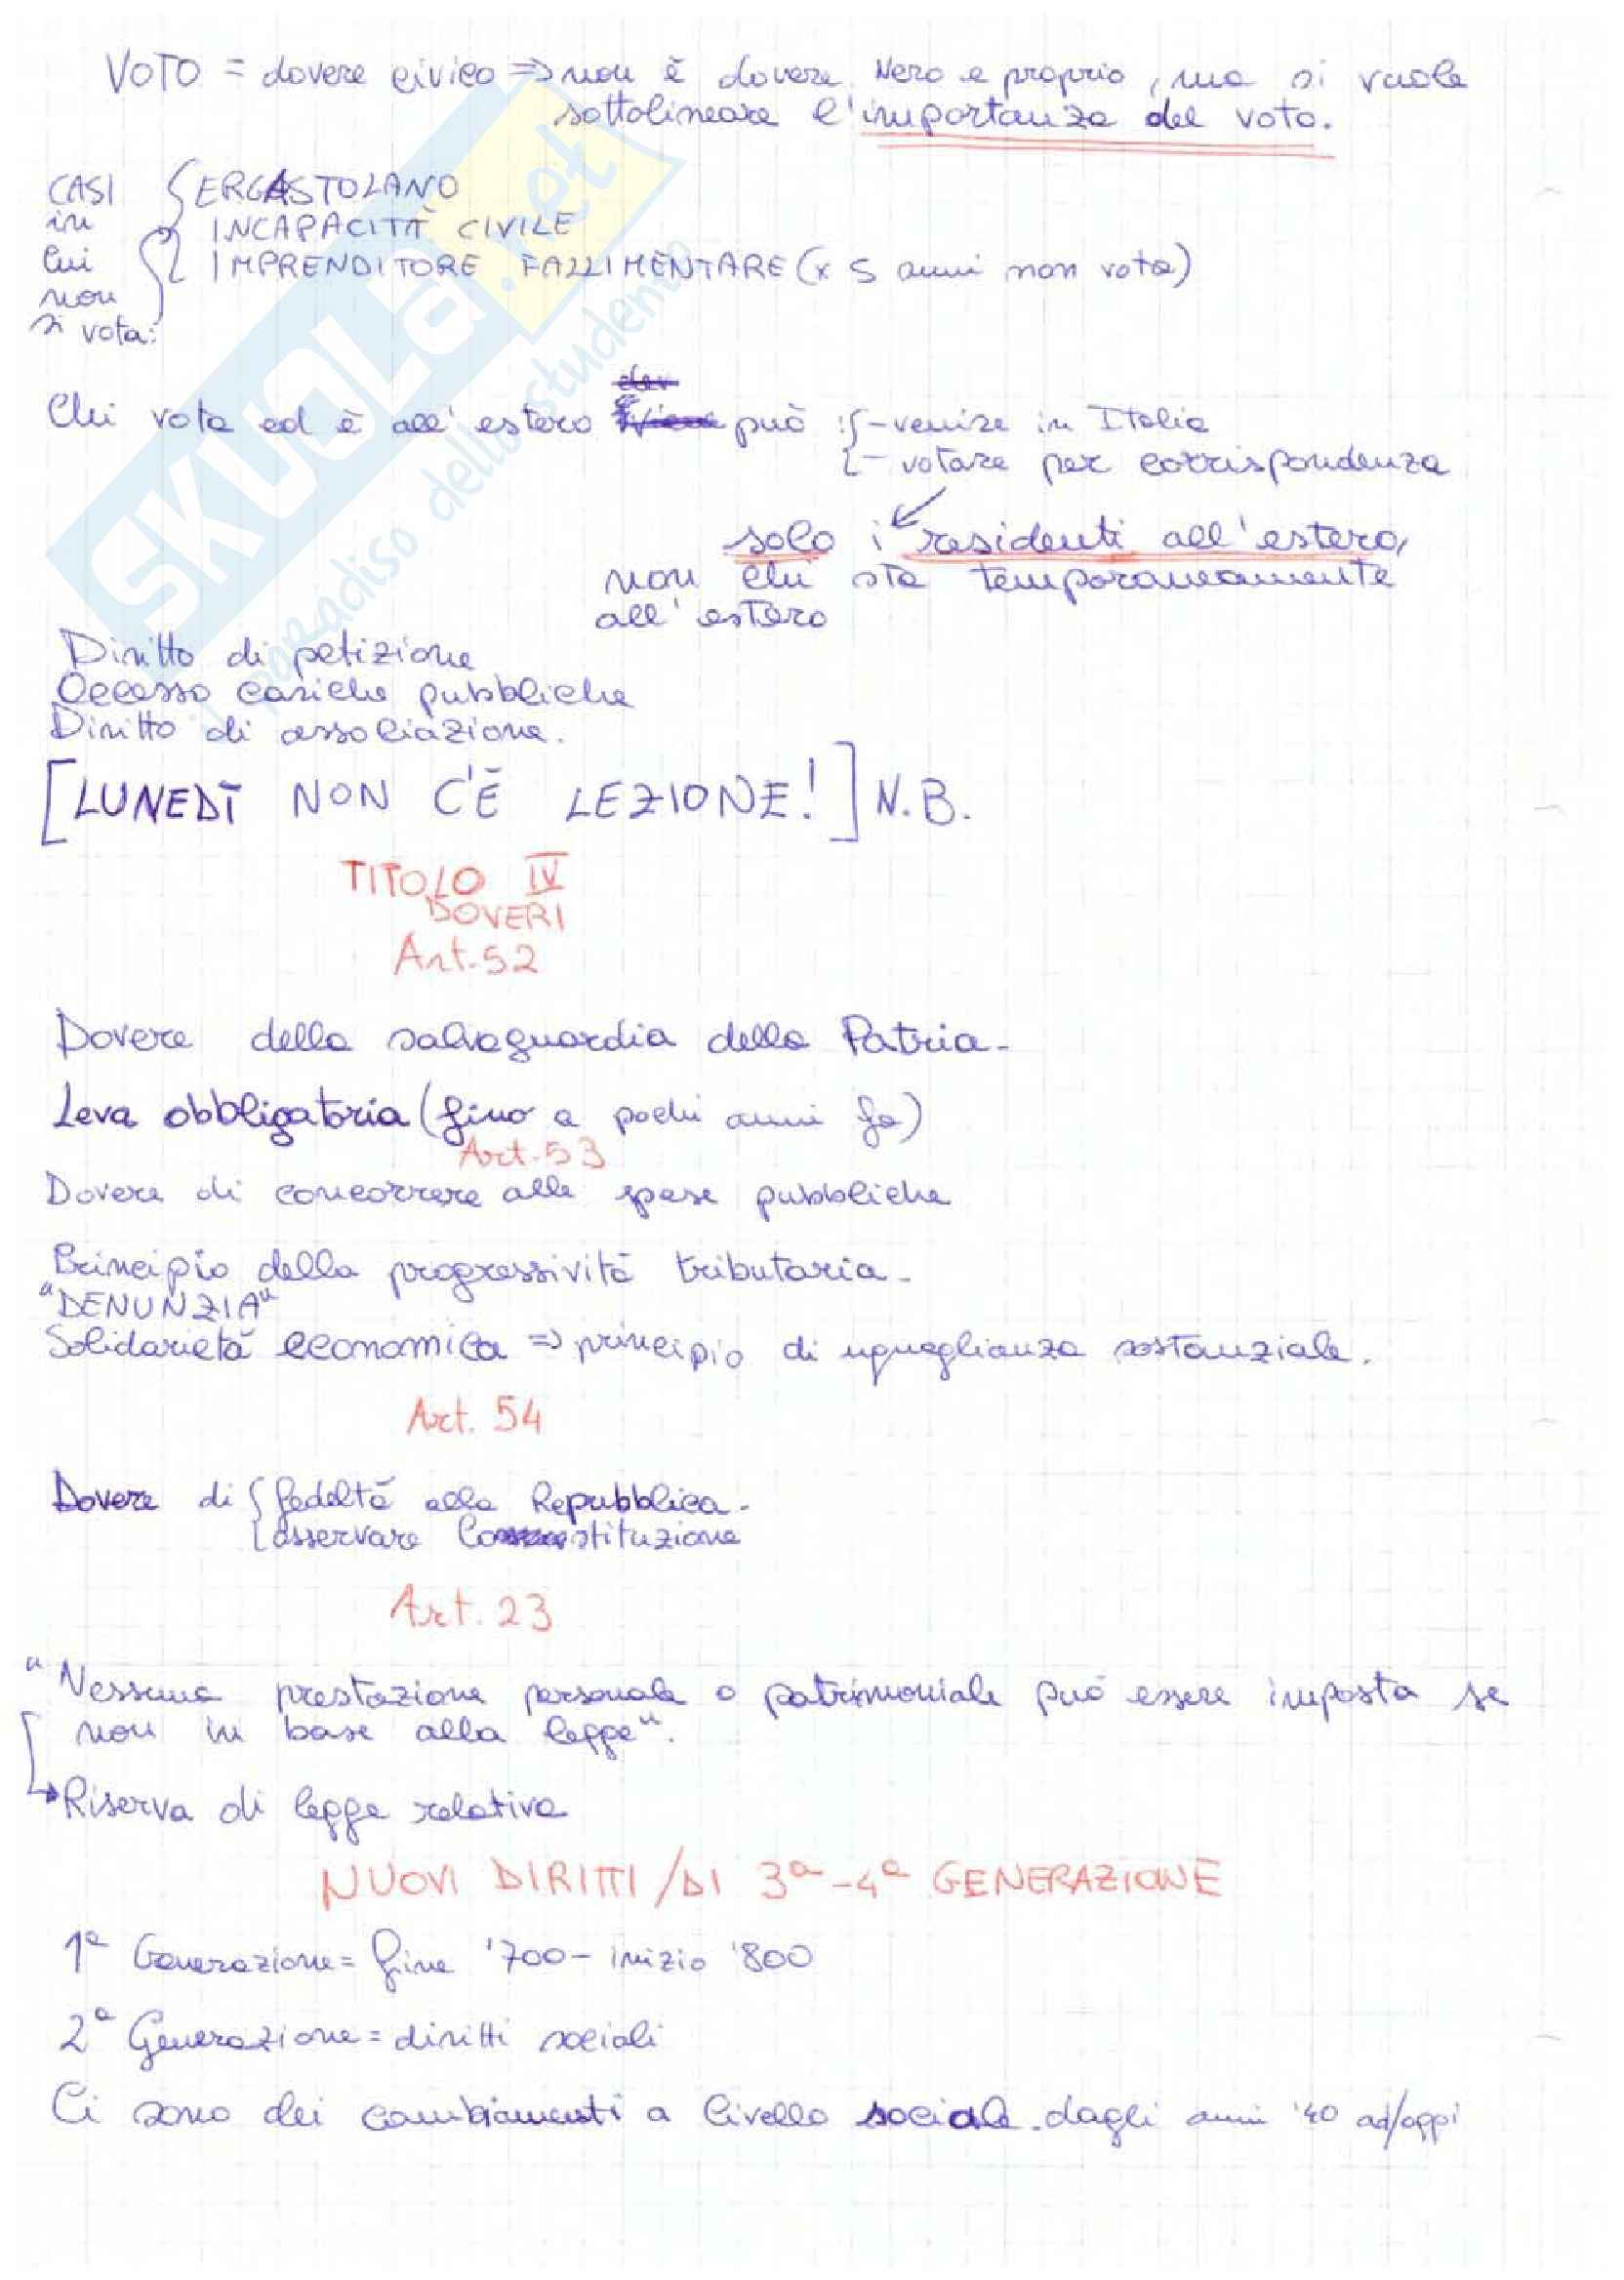 VOTO = dovere civico => non è dovere vero e proprio, ma si vuole
sottolineare l'importanza del voto.
CASI in cui non si vota:
ERGASTOLANO
INCAPACITÀ CIVILE
IMPRENDITORE FALLIMENTARE (x 5 anni non vota)
Chi vota ed è all'estero può : - venire in Italia
- votare per corrispondenza
solo i residenti all'estero,
non chi sta temporaneamente
all'estero
Diritto di petizione
Accesso cariche pubbliche
Diritto di associazione.
[LUNEDÌ NON C'È LEZIONE!] N.B.
TITOLO IV
DOVERI
Art. 52
Dovere della salvaguardia della Patria.
Leva obbligatoria (fino a pochi anni fa)
Art. 53
Dovere di concorrere alle spese pubbliche
Principio della progressività tributaria.
"DENUNZIA"
Solidarietà economica => principio di uguaglianza sostanziale.
Art. 54
Dovere di fedeltà alla Repubblica.
osservare Costituzione
Art. 23
"Nessuna prestazione personale o patrimoniale può essere imposta se
non in base alla legge".
Riserva di legge relativa
NUOVI DIRITTI / DI 3ª-4ª GENERAZIONE
1ª Generazione = fine '700 - inizio '800
2ª Generazione = diritti sociali
Ci sono dei cambiamenti a livello sociale dagli anni '40 ad/oggi
SKUOLA.net
il paradiso dello studente